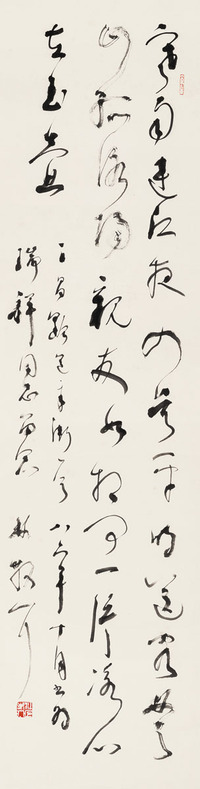 寒雨連江夜入吴平明送客楚
山孤洛陽親友如相問一片冰心
在玉壺
王昌齡送辛漸一首 八六年十月書為
瑞祥同志留念 林散耳